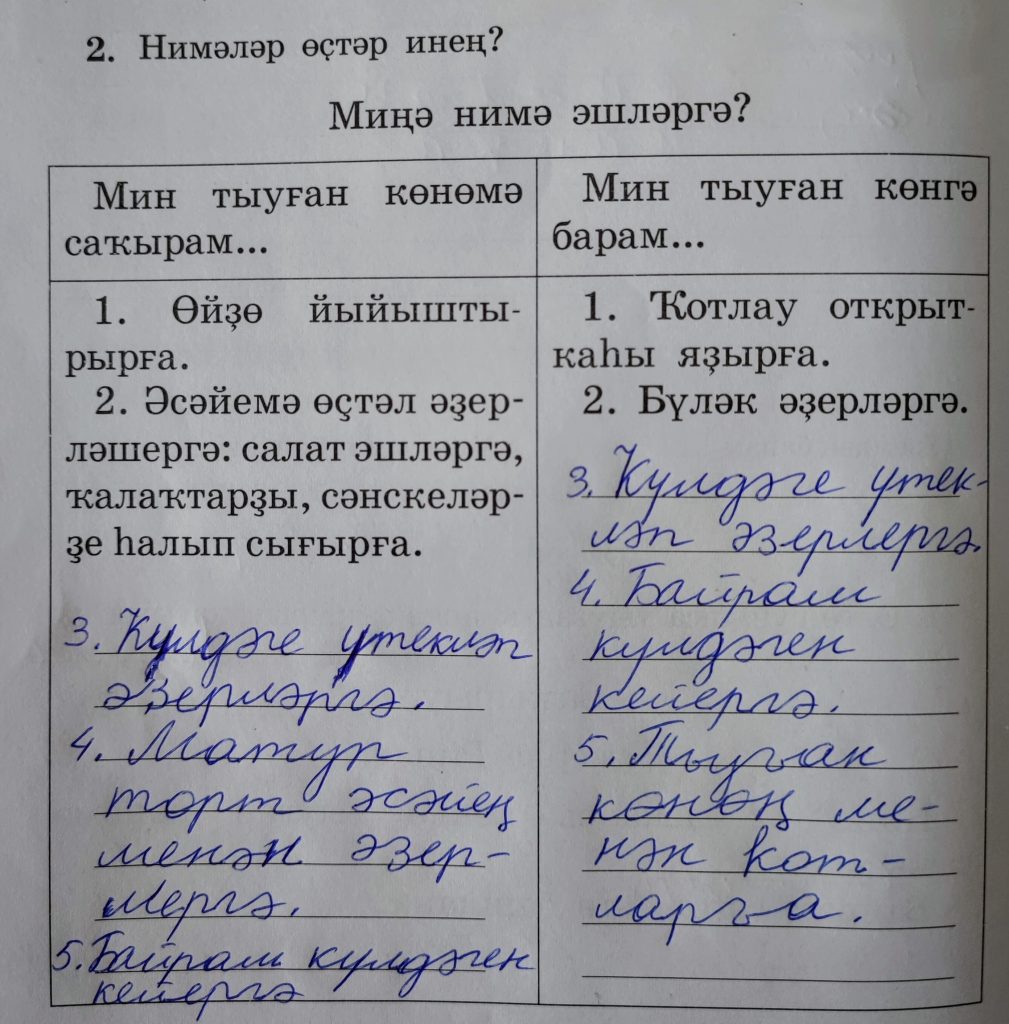 2. Нимәләр өҫтәр инең?
Миңә нимә эшләргә?
Мин тыуған көнөмә
саҡырам...
1. Өйҙө йыйышты-
рырға.
2. Әсәйемә өҫтәл әҙер-
ләшергә: салат эшләргә,
ҡалаҡтарҙы, сәнскеләр-
ҙе һалып сығырға.
3. Күлдәге үтекләп
әҙерләргә.
4. Матур
торт әсәйең
менән әҙер-
лергә.
5. Байрам күлдәген
кейергә
Мин тыуған көнгә
барам...
1. Ҡотлау открыт-
каһы яҙырға.
2. Бүләк әҙерләргә.
3. Күлдәге үтек-
ләп әҙерлергә.
4. Байрам
күлдәген
кейергә.
5. Тыуған
көнөң ме-
нән ҡот-
ларға.